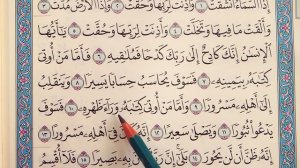 ٱلسَّمَآءُ ٱنشَقَّتۡ ١ وَأَذِنَتۡ لِرَبِّهَا وَحُقَّتۡ ٢ وَإِذَا ٱلۡأَرۡضُ مُدَّتۡ ٣
وَأَلۡقَتۡ مَا فِيهَا وَتَخَلَّتۡ ٤ وَأَذِنَتۡ لِرَبِّهَا وَحُقَّتۡ ٥ يَٰٓأَيُّهَا
ٱلۡإِنسَٰنُ إِنَّكَ كَادِحٌ إِلَىٰ رَبِّكَ كَدۡحٗا فَمُلَٰقِيهِ ٦ فَأَمَّا مَنۡ أُوتِيَ
كِتَٰبَهُۥ بِيَمِينِهِۦ ٧ فَسَوۡفَ يُحَاسَبُ حِسَابٗا يَسِيرٗا ٨ وَيَنقَلِبُ
إِلَىٰٓ أَهۡلِهِۦ مَسۡرُورٗا ٩ وَأَمَّا مَنۡ أُوتِيَ كِتَٰبَهُۥ وَرَآءَ ظَهۡرِهِۦ ١٠ فَسَوۡفَ
يَدۡعُواْ ثُبُورٗا ١١ وَيَصۡلَىٰ سَعِيرًا ١٢ إِنَّهُۥ كَانَ فِيٓ أَهۡلِهِۦ مَسۡرُورًا ١٣
إِنَّهُۥ ظَنَّ أَن لَّن يَحُورَ ١٤ بَلَىٰٓۚ إِنَّ رَبَّهُۥ كَانَ بِهِۦ بَصِيرٗا ١٥ فَلَآ أُقۡسِمُ